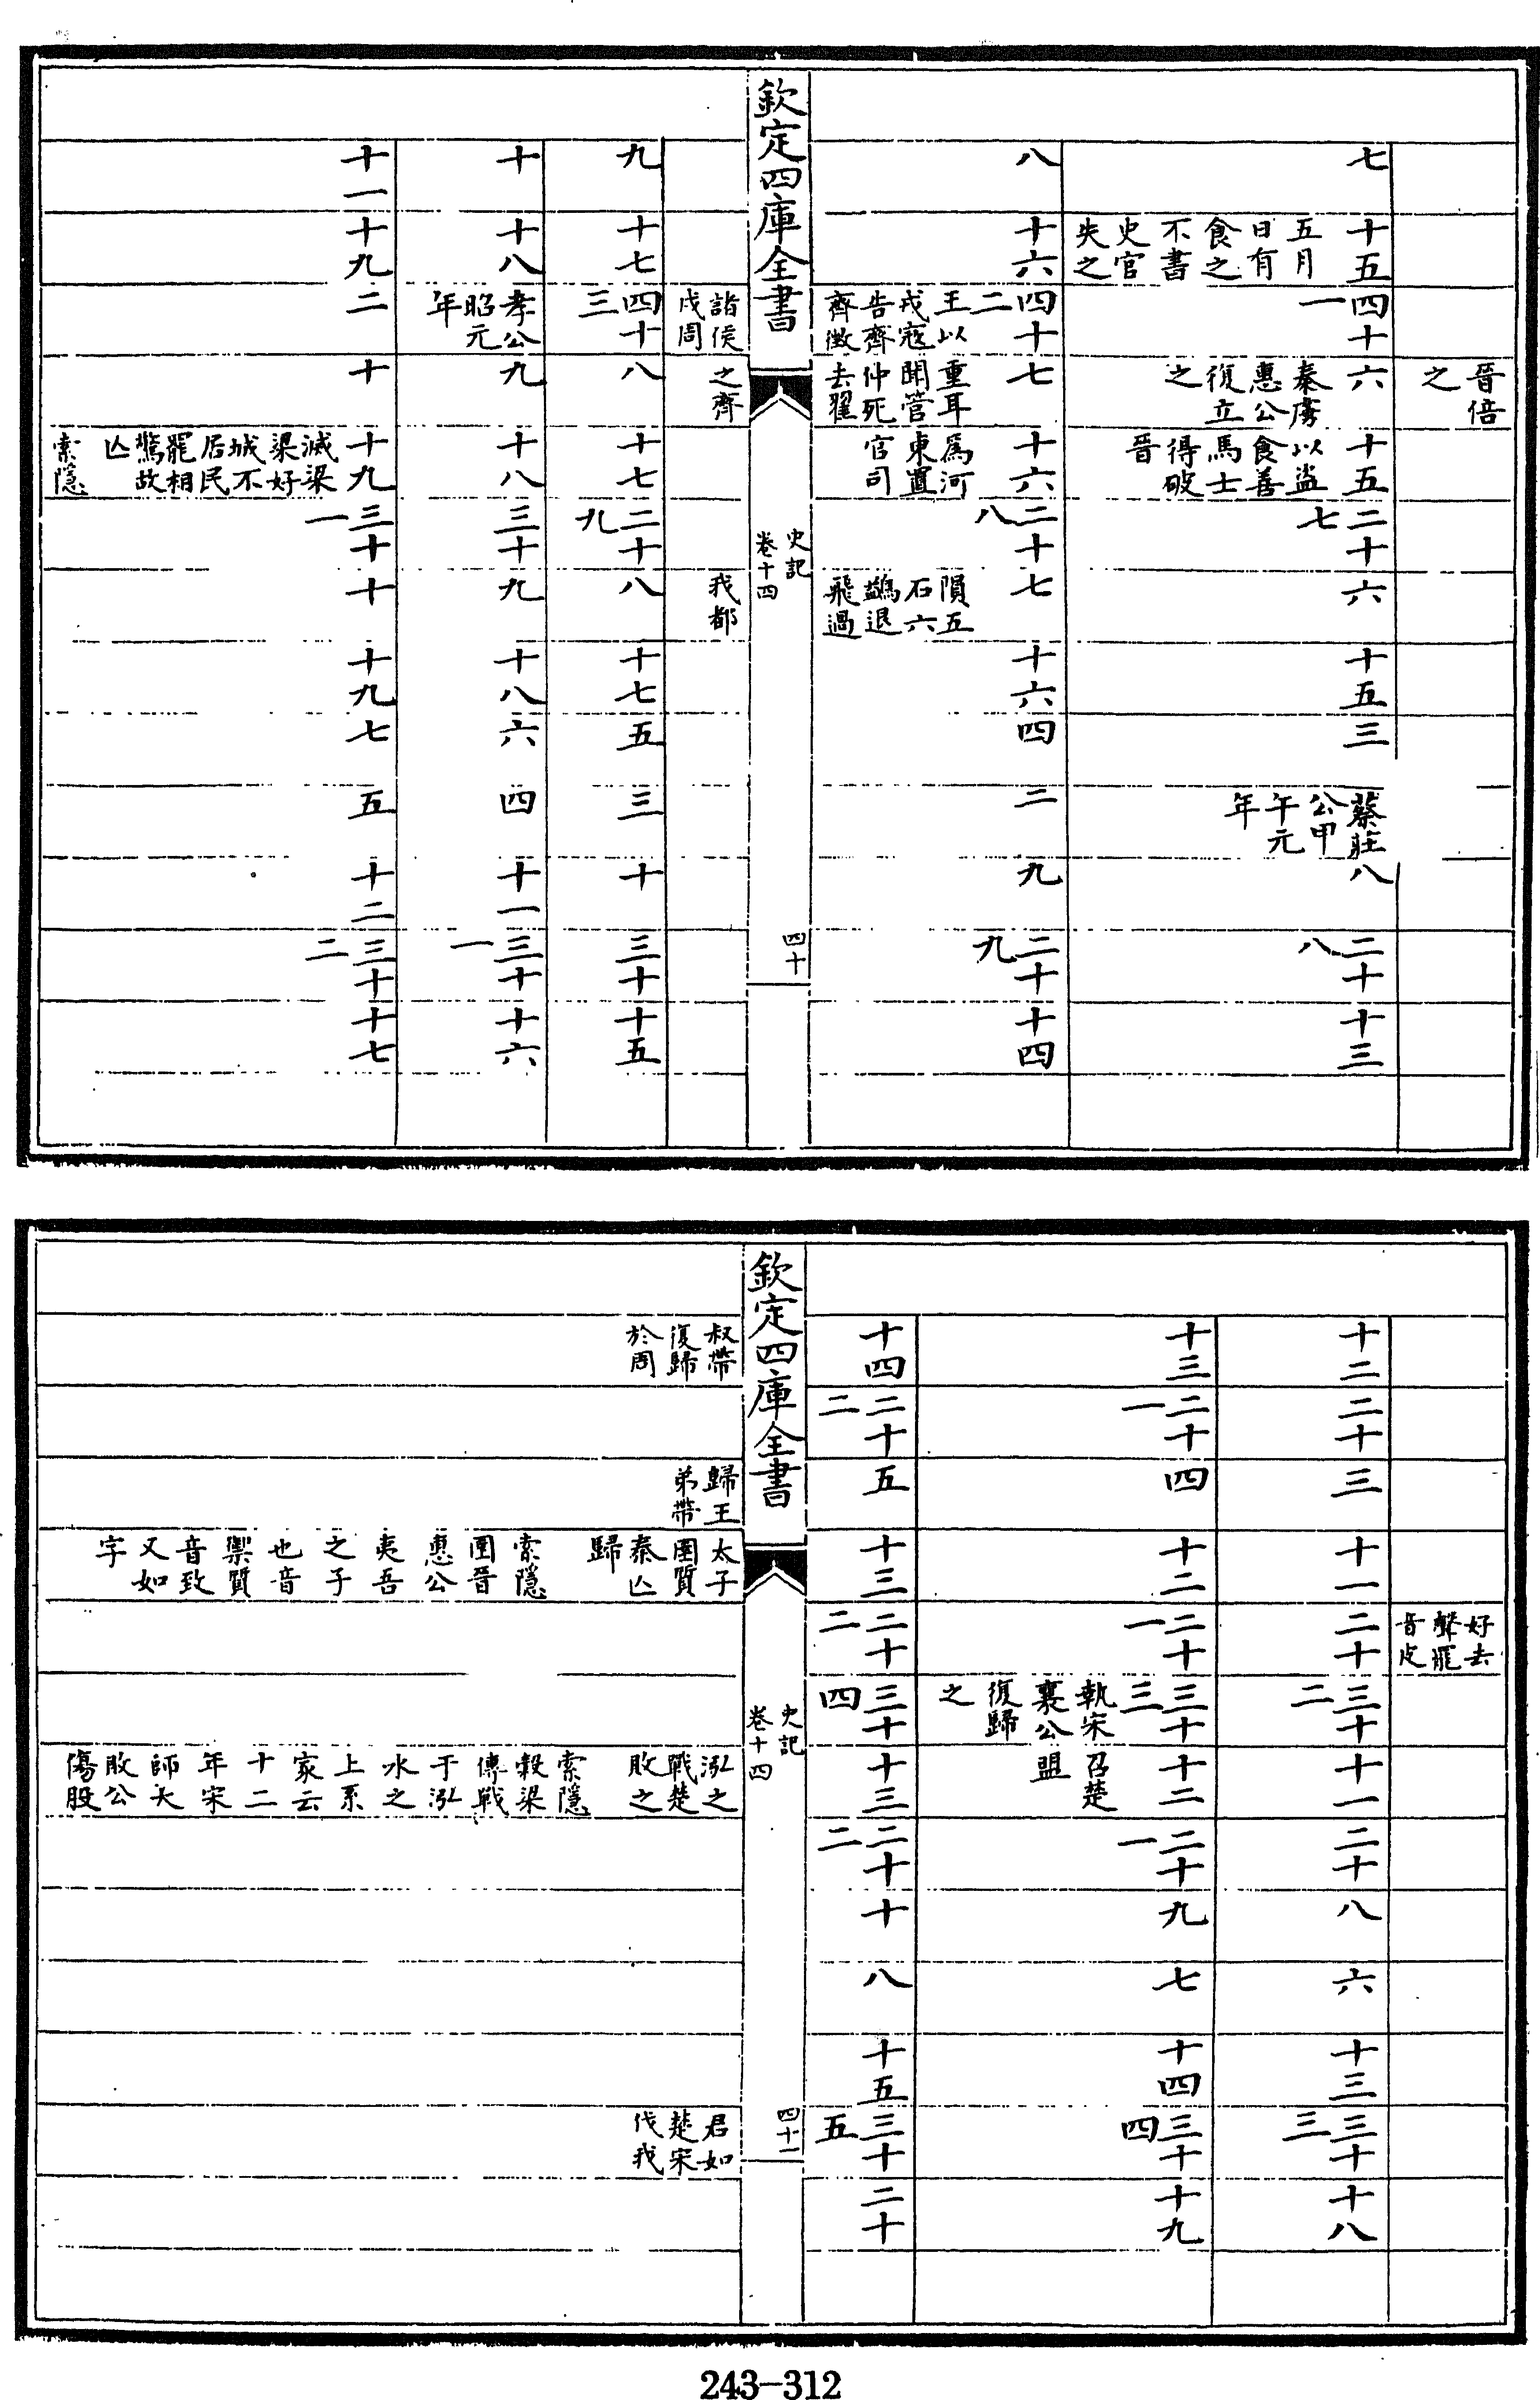 晉倍之
七
十五 五月日有食之不書史官失之
四十一
六 秦虜惠公復立之
十五 以盜食善馬士得破晉
二十七
六
十五
三
蔡莊公甲午元年
八
二十八
十三
八
十六
四十二 王以戎寇告齊齊徵
七 重耳聞管仲死去翟
十六 爲河東置官司
二十八
七 隕五石六鷁退飛過
十六
四
二
九
二十九
十四
欽定四庫全書
史記
卷十四
四十
諸侯戍周
之齊
我都
九
十七
四十三
八
十七
二十九
八
十七
五
三
十
三十
十五
十
十八
孝公昭元年
九
十八
三十
九
十八
六
四
十一
三十一
十六
十一
十九
二
十
十九 滅梁梁好城不居民罷相驚故亾 索隱
三十一
十
十九
七
五
十二
三十二
十七
好去聲罷音皮
十二
二十
三
十一
二十
三十二
十一
二十
八
六
十三
三十三
十八
十三
二十一
四
十二
二十一
三十三 執宋襄公復歸之
十二 召楚盟
二十一
九
七
十四
三十四
十九
十四
二十二
五
十三
二十二
三十四
十三
二十二
十
八
十五
三十五
二十
欽定四庫全書
史記
卷十四
四十一
叔帶復歸於周
歸王弟帶
太子圉質秦亾歸 索隱圉晉惠公夷吾之子也音禦質音致又如字
泓之戰楚敗之 索隱榖梁傳戰于泓水之上系家云十二年宋師大敗公傷股
君如楚宋伐我
243-312